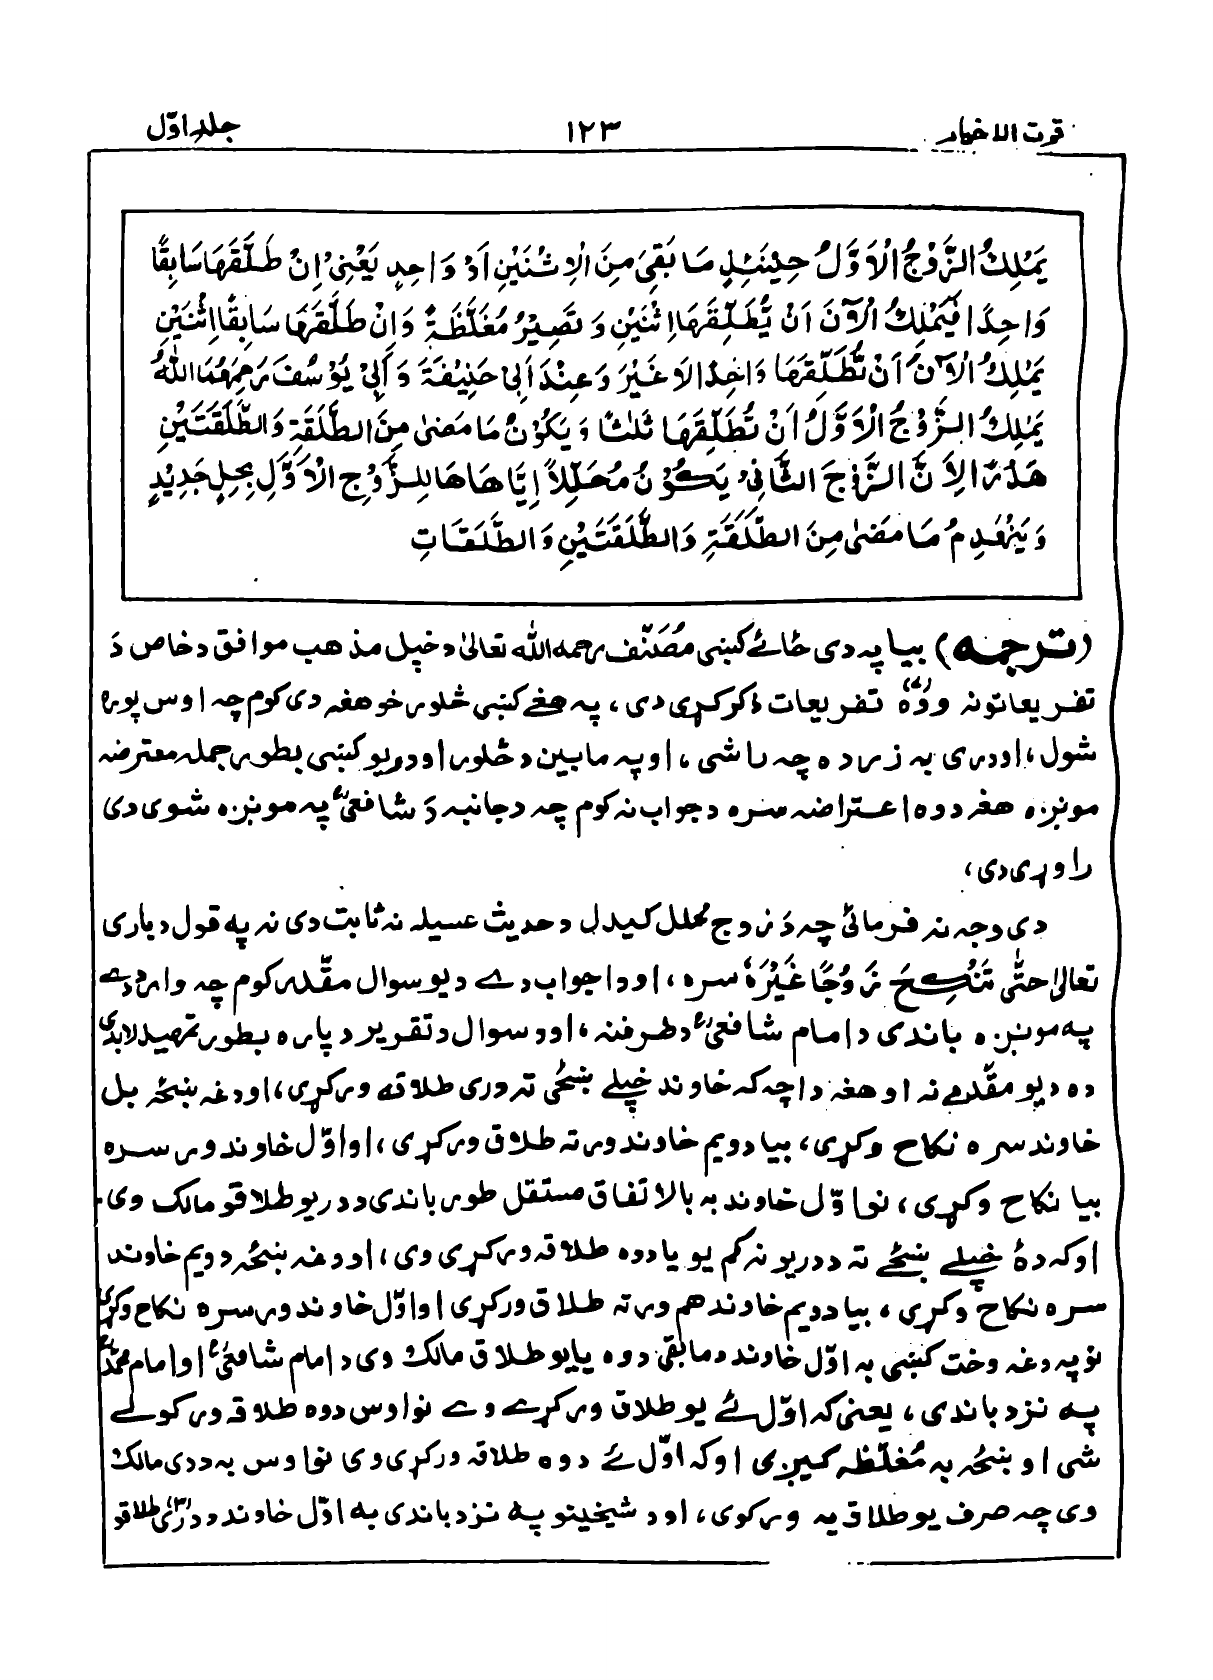 قرت الاخيار ۱۲۳ جلد اوّل
يَمْلِكُ الزَّوْجُ الْاَوَّلُ حِيْنَئِذٍ مَا بَقِيَ مِنَ الْاِثْنَيْنِ اَوْ وَاحِدٍ يَعْنِيْ اِنْ طَلَّقَهَا سَابِقًا
وَاحِدًا فَيَمْلِكُ الْآنَ اَنْ يُّطَلِّقَهَا اِثْنَيْنِ وَتَصِيْرُ مُغَلَّظَةً وَاِنْ طَلَّقَهَا سَابِقًا اِثْنَيْنِ
يَمْلِكُ الْآنَ اَنْ يُّطَلِّقَهَا وَاحِدًا لَا غَيْرَ وَعِنْدَ اَبِيْ حَنِيْفَةَ وَاَبِيْ يُوْسُفَ رَحِمَهُمَا اللّٰهُ
يَمْلِكُ الزَّوْجُ الْاَوَّلُ اَنْ يُطَلِّقَهَا ثَلٰثًا وَيَكُوْنُ مَا مَضٰى مِنَ الطَّلَقَةِ وَالطَّلَقَتَيْنِ
هَدَرًا لِاَنَّ الزَّوْجَ الثَّانِيْ يَكُوْنُ مُحَلِّلًا اِيَّاهَا لِلزَّوْجِ الْاَوَّلِ بِحِلٍ جَدِيْدٍ
وَيَنْهَدِمُ مَا مَضٰى مِنَ الطَّلَقَةِ وَالطَّلَقَتَيْنِ وَالطَّلَقَاتِ
(ترجمه) بيا په دی ځائے کښې مُصَنِّف رحمه الله تعالیٰ د خپل مذهب موافق د خاص دَ
تفریعاتو نه ووهٔ (۷) تفریعات ذکر کړی دی، په هغے کښې څلور خو هغه دی کوم چه اوس پوره
شول، او دری به زر ده چه راشی، او په مابین د څلورو او دریو کښې بطور جمله معترضه
مونږه هغه دوه اعتراضه سره د جواب نه کوم چه د جانبه دَ شافعیؒ په مونږه شوی دی
راوړی دی،
دی وجه نه فرمائی چه دَ زوج محلل کیدل د حدیث عسیله نه ثابت دی نه په قول د باری
تعالیٰ حتّٰى تَنْكِحَ زَوْجًا غَيْرَهٗ سره، او دا جواب دے د یو سوال مقدّر کوم چه وارد دے
په مونږه باندی د امام شافعیؒ د طرفنه، او د سوال د تقریر د پاره بطور تمهید لابدی
ده د یو مقدّمے نه او هغه دا چه که خاوند خپلے ښځی ته دری طلاقه ورکړی، او دغه ښځه بل
خاوند سره نکاح وکړی، بیا دویم خاوند ورته طلاق ورکړی، او اوّل خاوند ورسره
بیا نکاح وکړی، نو اوّل خاوند به بالاتفاق مستقل طور باندی د دریو طلاقو مالک وی،
او که دهٔ خپلے ښځے ته د دریو نه کم یو یا دوه طلاقه ورکړی وی، او دغه ښځه دویم خاوند
سره نکاح وکړی، بیا دویم خاوند هم ورته طلاق ورکړی او اوّل خاوند ورسره نکاح وکړی
نو په دغه وخت کښې به اوّل خاوند د مابقی دوه یا یو طلاق مالک وی د امام شافعیؒ او امام محمدؒ
په نزد باندی، یعنی که اوّل ئے یو طلاق ورکړے وے نو اوس دوه طلاقه ورکولے
شی او ښځه به مُغلّظه کیږی او که اوّل ئے دوه طلاقه ورکړی وی نو اوس به دی مالک
وی چه صرف یو طلاق به ورکوی، او د شیخینو په نزد باندی به اوّل خاوند د دری (۳) طلاقو